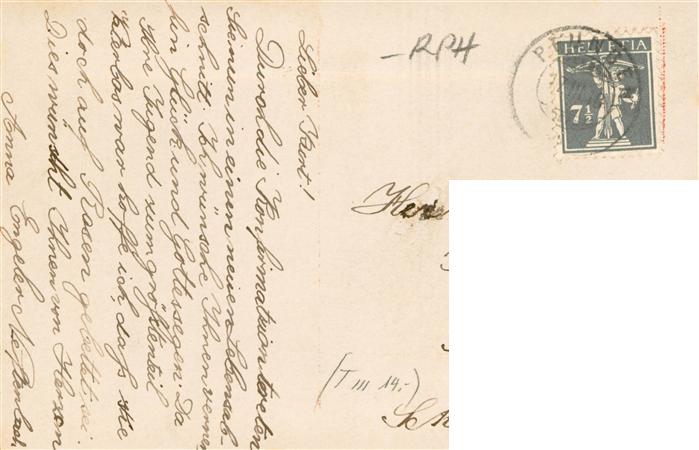 Lieber Kurt!
Durch die Konfirmation treten
Sie nun in einen neuen Lebensab-
schnitt. Ich wünsche Ihnen ferner-
hin Glück und Gottessegen. Da
Ihre Jugend zum größten teil
war hoffe ich, daß sie
doch auf Rosen gebettet sei.
Dies wünscht Ihnen von Herzen
Anna Engeler
-RPH
HELVETIA
7½
Her
(T III 14.-)